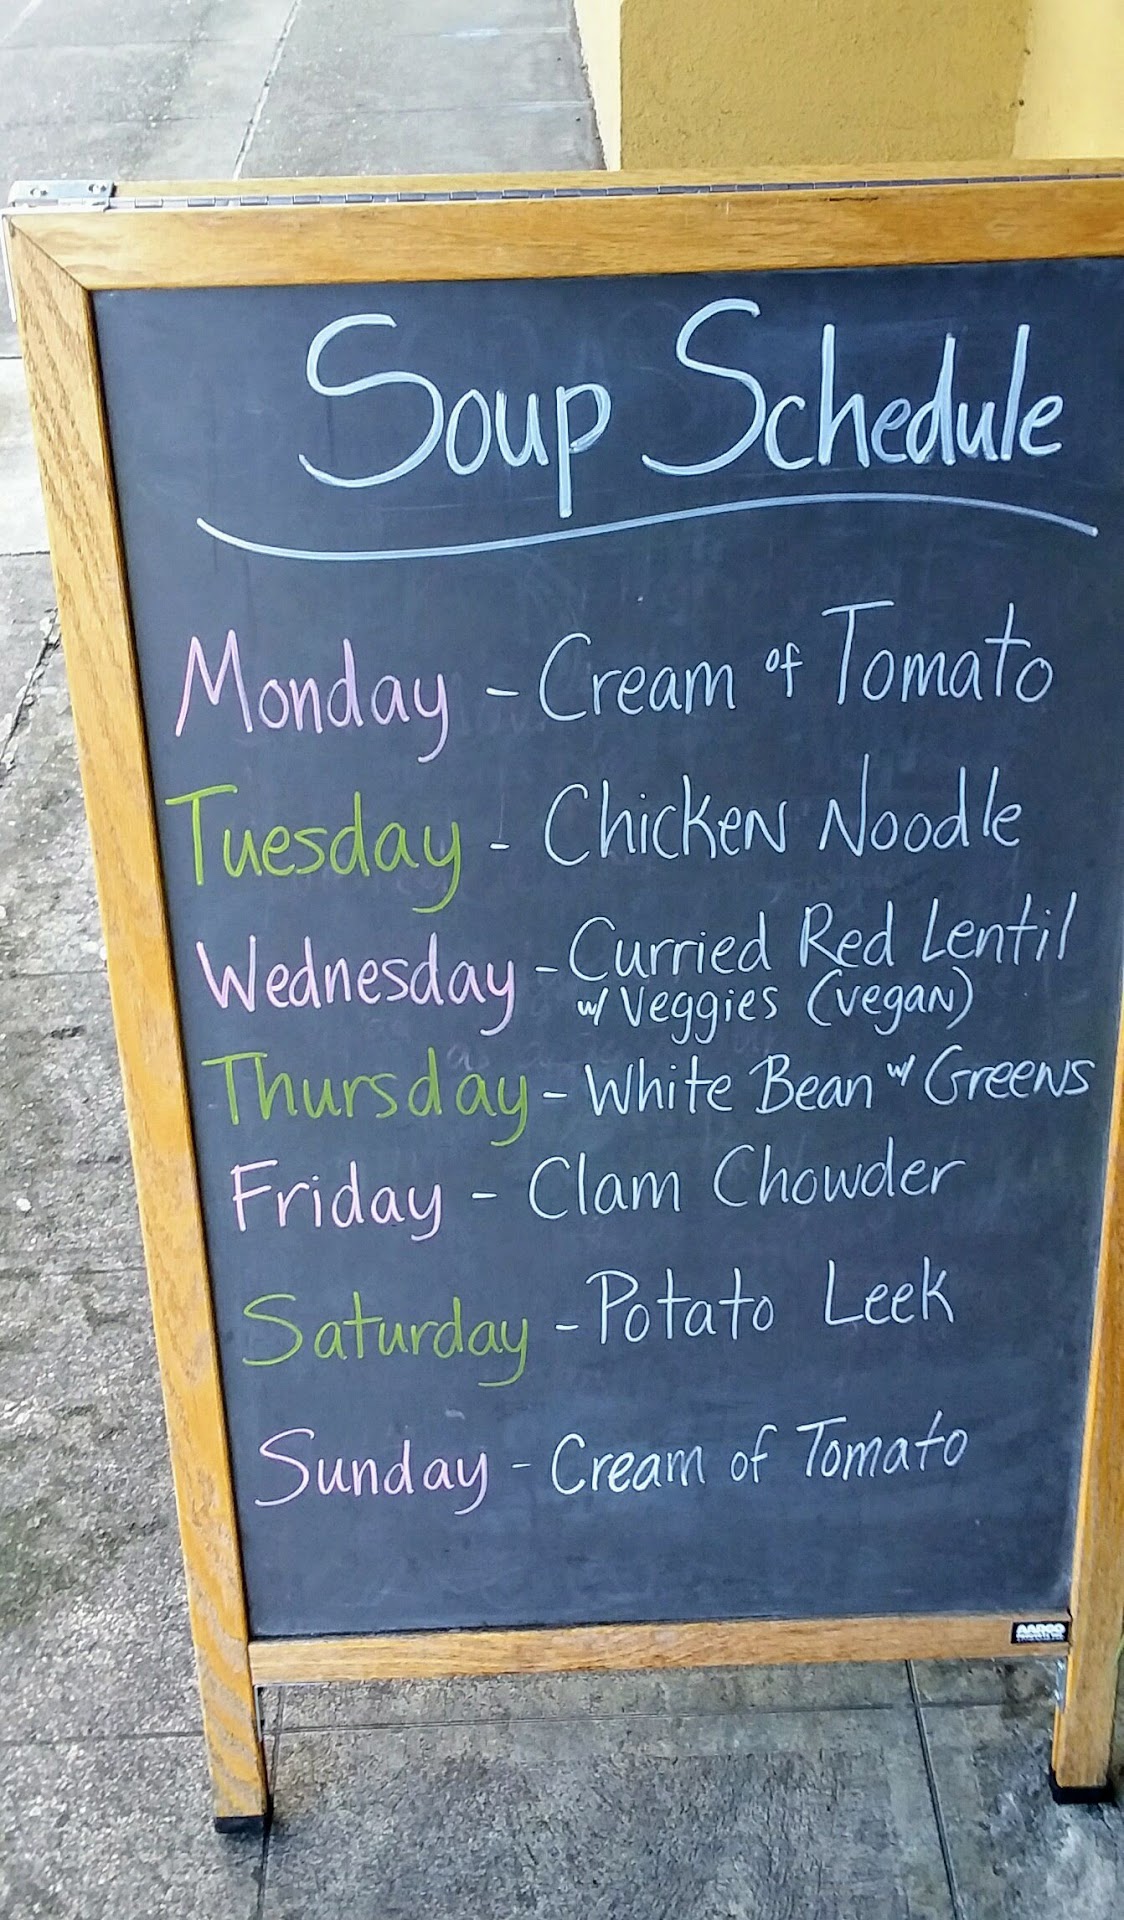 Soup Schedule
Monday - Cream of Tomato
Tuesday - Chicken Noodle
Wednesday - Curried Red Lentil
w/ Veggies (vegan)
Thursday - White Bean w/ Greens
Friday - Clam Chowder
Saturday - Potato Leek
Sunday - Cream of Tomato
AARCO